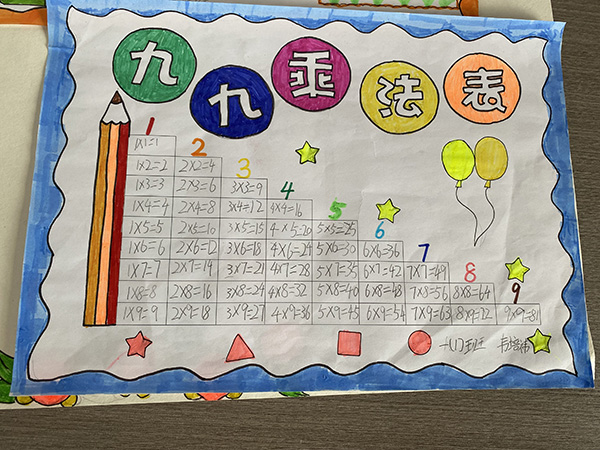 九九乘法表
1
1×1=1 2
1×2=2 2×2=4 3
1×3=3 2×3=6 3×3=9 4
1×4=4 2×4=8 3×4=12 4×4=16 5
1×5=5 2×5=10 3×5=15 4×5=20 5×5=25 6
1×6=6 2×6=12 3×6=18 4×6=24 5×6=30 6×6=36 7
1×7=7 2×7=14 3×7=21 4×7=28 5×7=35 6×7=42 7×7=49 8
1×8=8 2×8=16 3×8=24 4×8=32 5×8=40 6×8=48 7×8=56 8×8=64 9
1×9=9 2×9=18 3×9=27 4×9=36 5×9=45 6×9=54 7×9=63 8×9=72 9×9=81
一(1)班